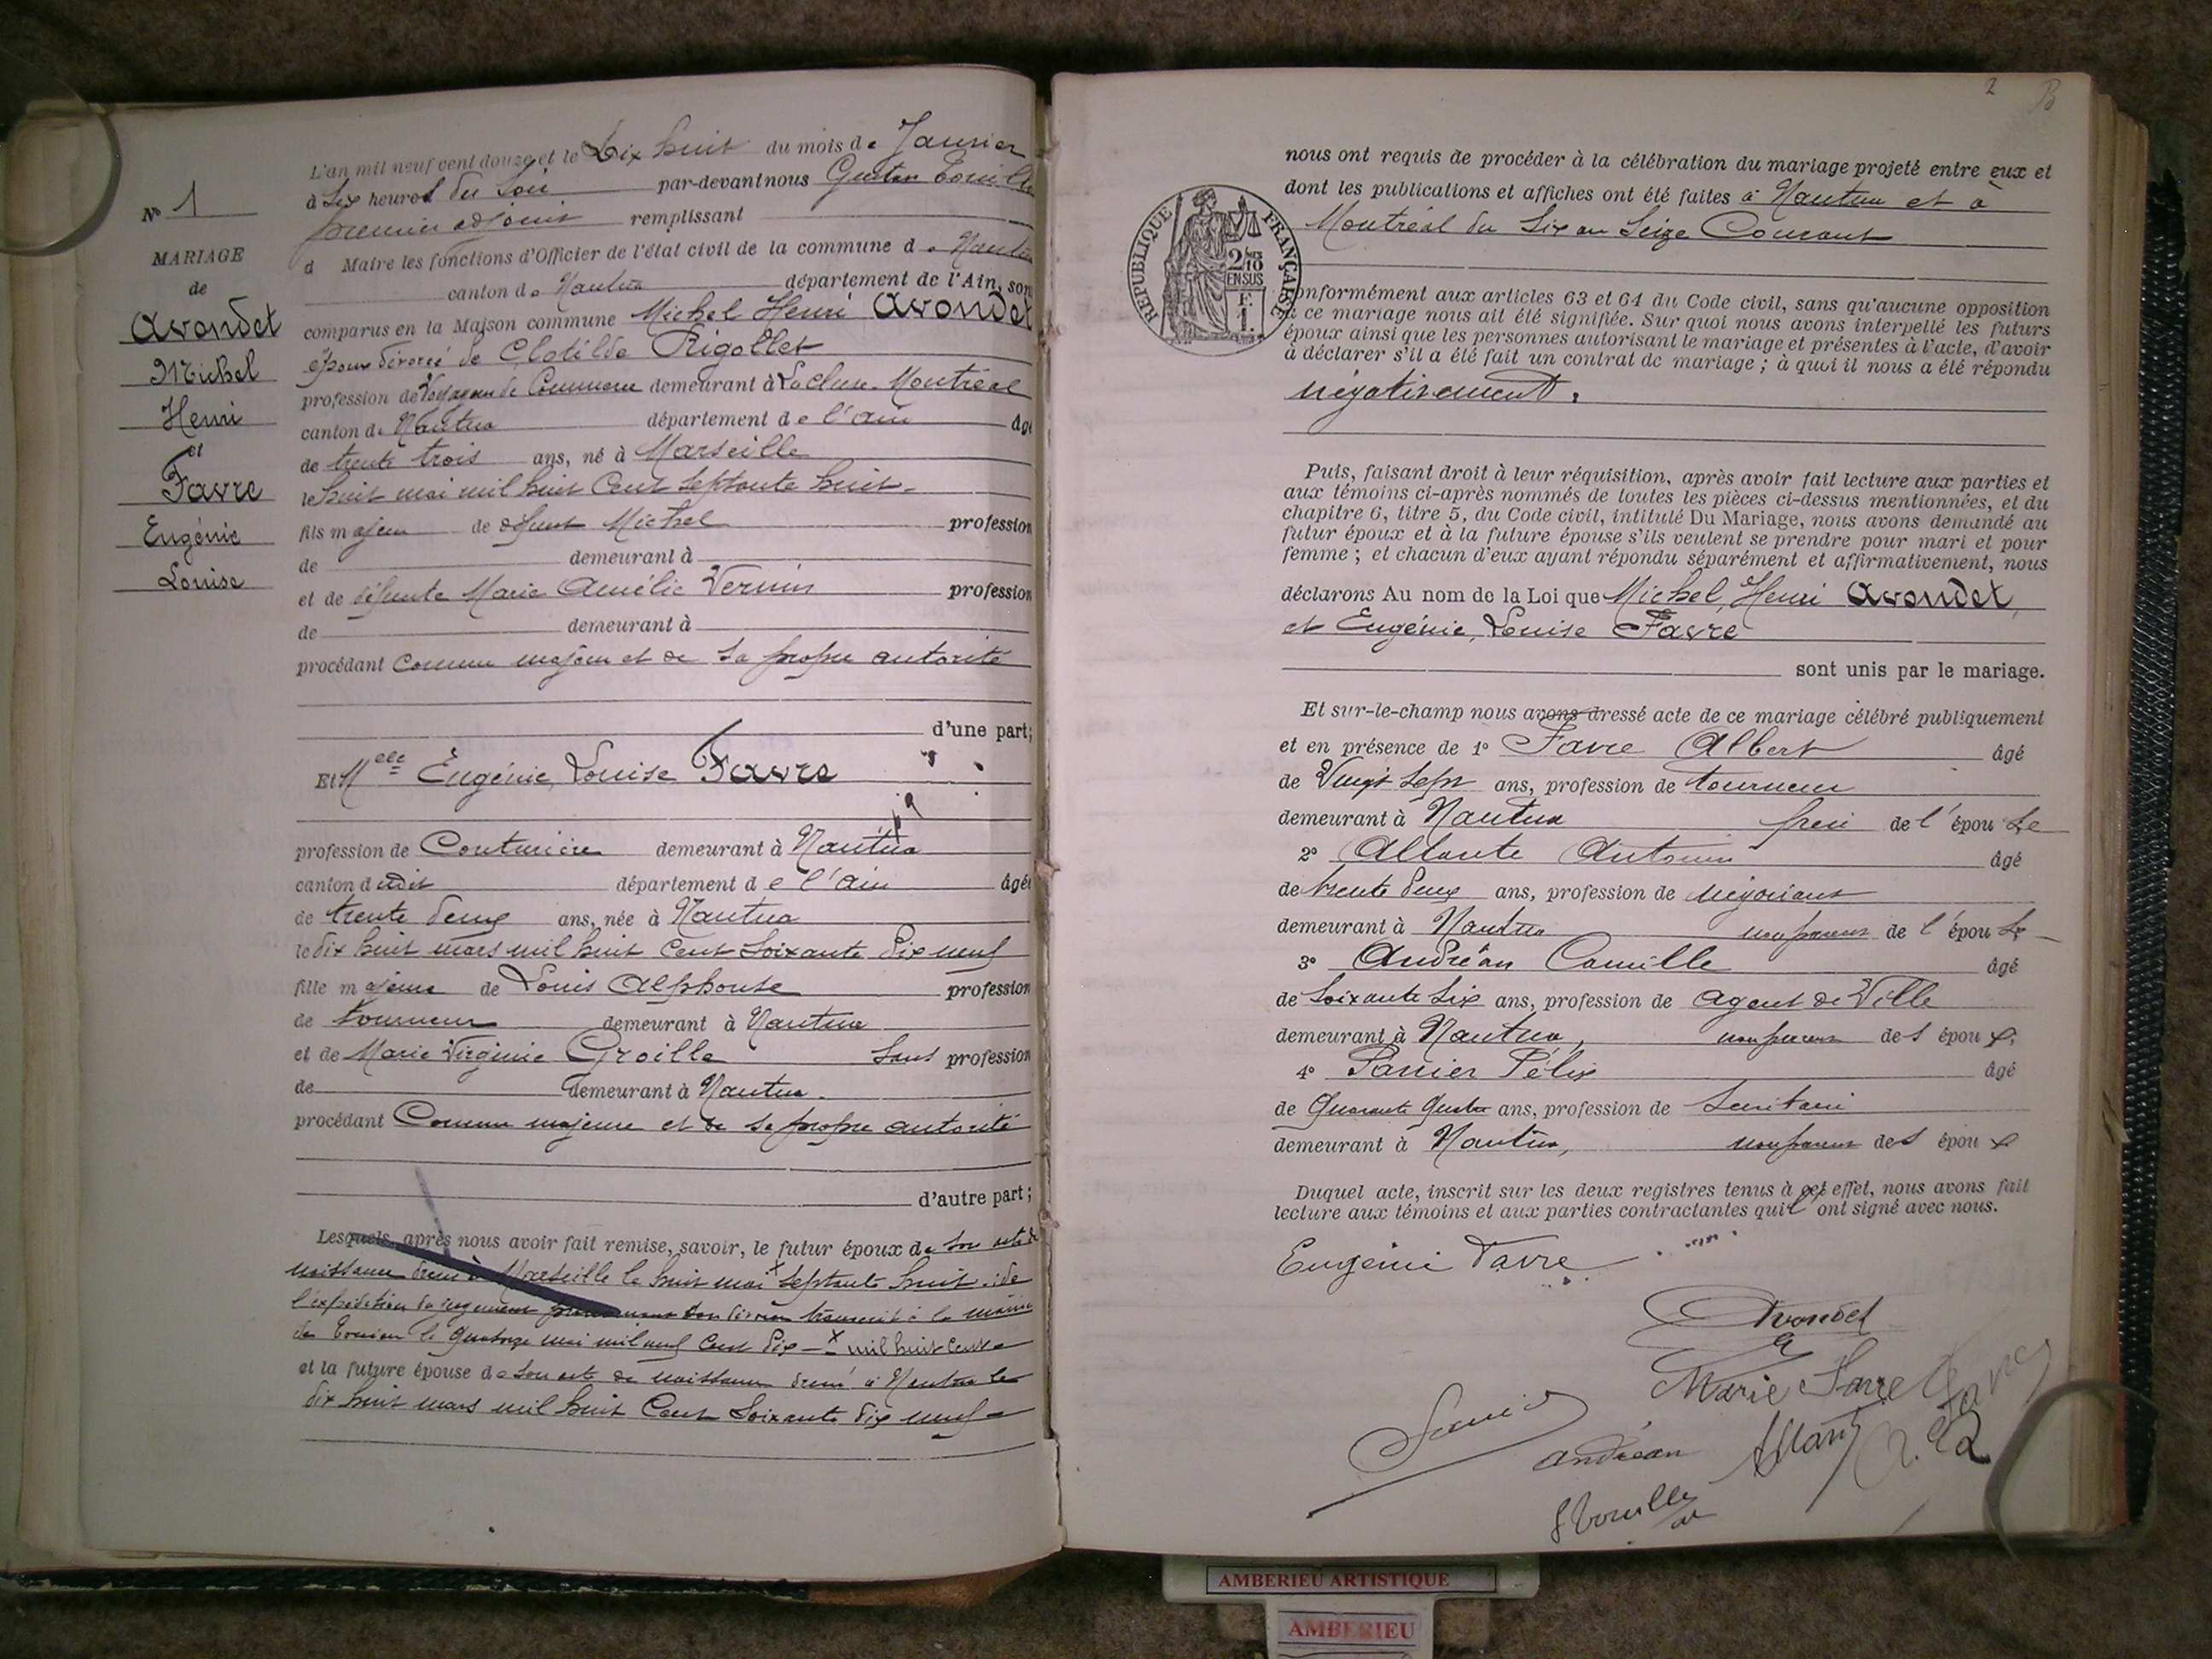 L'an mil neuf cent douze et le Dix huit du mois de Janvier
à Six heures du Soir par-devant nous Gustave
premier adjoint remplissant
d Maire les fonctions d'Officier de l'état civil de la commune de Nantua
canton de Nantua département de l'Ain, sont
comparus en la Maison commune Michel Henri Avondet
époux divorcé de Clotilde Rigollet
profession de Voyageur de Commerce demeurant à La Cluse-Montréal
canton de Nantua département de l'ain âgé
de trente trois ans, né à Marseille
le huit mai mil huit Cent Septante huit.
fils majeur de défunt Michel profession
de demeurant à
et de défunte Marie Amélie Vernin profession
de demeurant à
procédant Comme majeur et de Sa propre autorité
d'une part;
Et Melle Eugénie, Louise Favre
profession de Couturière demeurant à Nantua
canton dudit département de l'ain âgée
de trente deux ans, née à Nantua
le dix huit mars mil huit Cent Soixante Dix neuf
fille majeure de Louis Alphonse profession
de tourneur demeurant à Nantua
et de Marie Virginie Groille Sans profession
de demeurant à Nantua.
procédant Comme majeure et de sa propre autorité
d'autre part;
Lesquels, après nous avoir fait remise, savoir, le futur époux de Son acte de
naissance dressé à Marseille le huit mai x Septante huit. de
l'expédition du jugement son divorce transcrit à la mairie
de le Quatorze mai mil neuf Cent Dix - x mil huit Cent
et la future épouse de Son acte de naissance dressé à Nantua le
dix huit mars mil huit Cent Soixante dix neuf
N° 1
MARIAGE
de
Avondet
Michel
Henri
et
Favre
Eugénie
Louise
2
B
nous ont requis de procéder à la célébration du mariage projeté entre eux et
dont les publications et affiches ont été faites à Nantua et à
Montréal du Six au Seize Courant
RÉPUBLIQUE FRANÇAISE
2/10
EN SUS
F.
1.
conformément aux articles 63 et 64 du Code civil, sans qu'aucune opposition
à ce mariage nous ait été signifiée. Sur quoi nous avons interpellé les futurs
époux ainsi que les personnes autorisant le mariage et présentes à l'acte, d'avoir
à déclarer s'il a été fait un contrat de mariage ; à quoi il nous a été répondu
négativement.
Puis, faisant droit à leur réquisition, après avoir fait lecture aux parties et
aux témoins ci-après nommés de toutes les pièces ci-dessus mentionnées, et du
chapitre 6, titre 5, du Code civil, intitulé Du Mariage, nous avons demandé au
futur époux et à la future épouse s'ils veulent se prendre pour mari et pour
femme ; et chacun d'eux ayant répondu séparément et affirmativement, nous
déclarons Au nom de la Loi que Michel, Henri Avondet,
et Eugénie, Louise Favre
sont unis par le mariage.
Et sur-le-champ nous avons dressé acte de ce mariage célébré publiquement
et en présence de 1° Favre Albert âgé
de Vingt Sept ans, profession de tourneur
demeurant à Nantua frère de l'épouse
2° Allante Antonin âgé
de trente deux ans, profession de négociant
demeurant à Nantua non parent de l'épouse
3° Andréan Camille âgé
de Soixante Six ans, profession de agent de Ville
demeurant à Nantua, non parent des époux,
4° Panier Félix âgé
de Quarante Quatre ans, profession de Secrétaire
demeurant à Nantua, non parent des époux
Duquel acte, inscrit sur les deux registres tenus à cet effet, nous avons fait
lecture aux témoins et aux parties contractantes qui l'ont signé avec nous.
Eugénie Favre
Avondet
Marie Favre
Andréan
AMBERIEU ARTISTIQUE
AMBERIEU